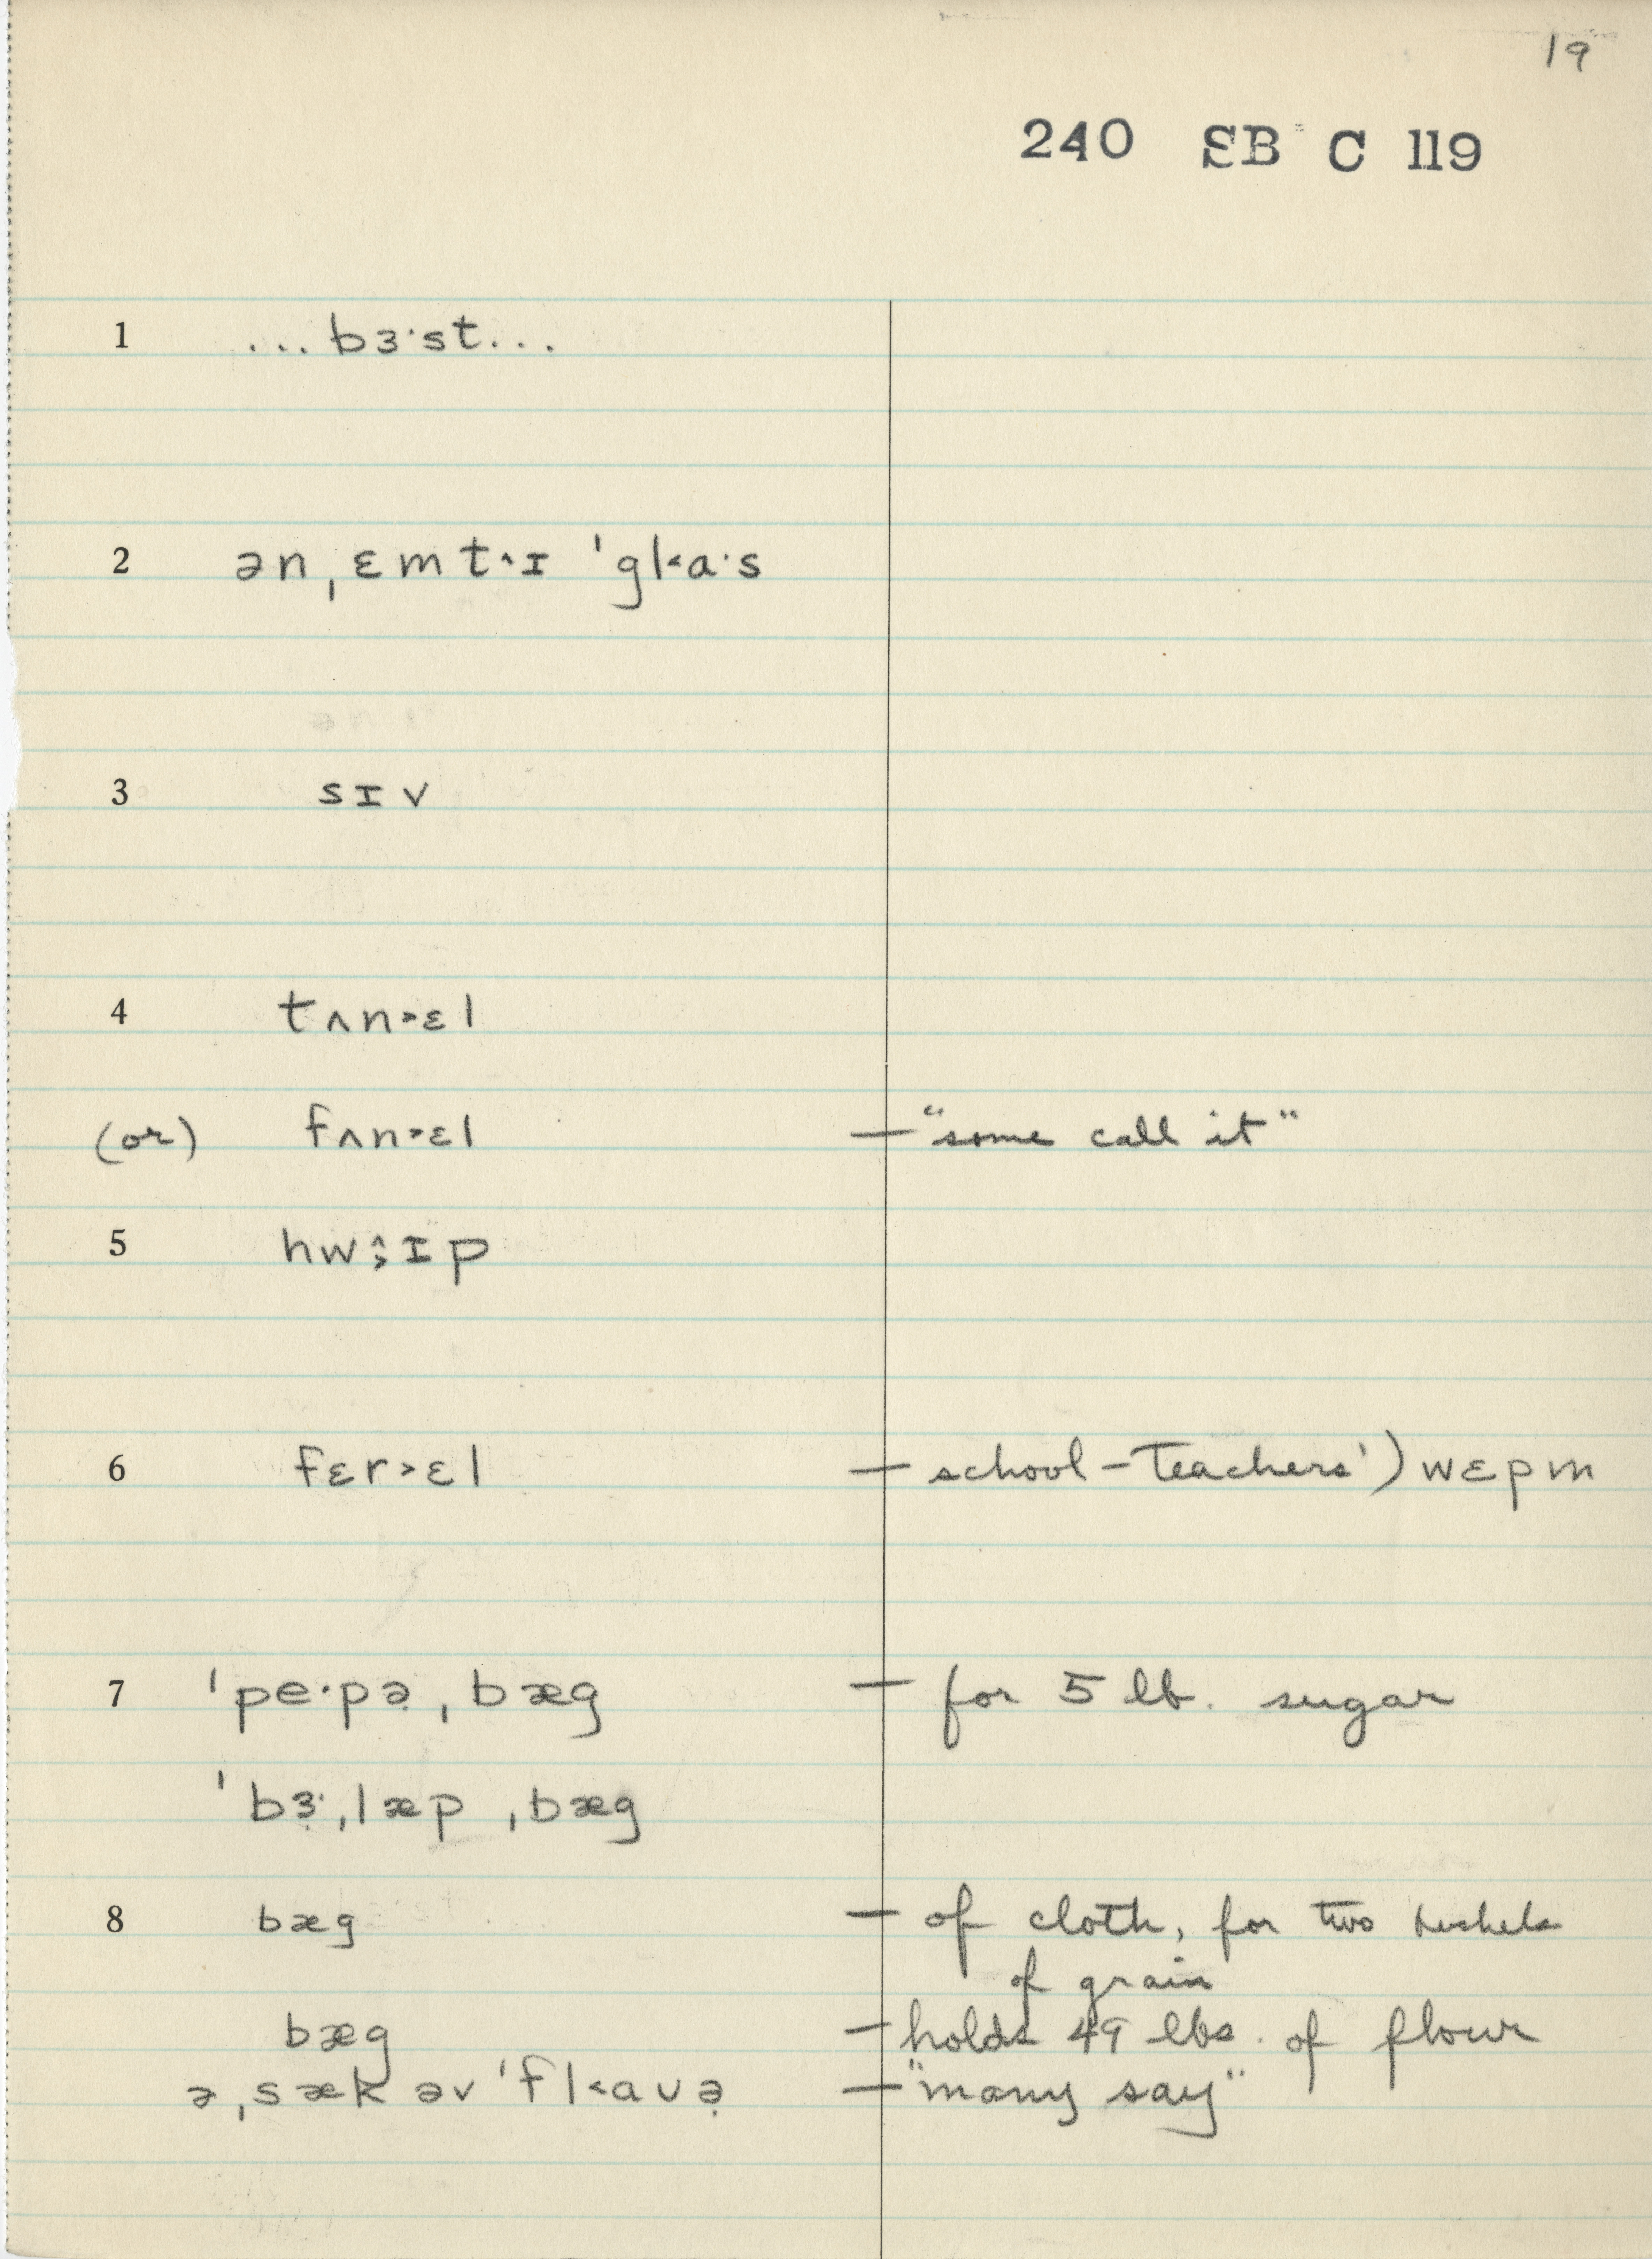 19
240 SB C 119
1 ...bɜ·st...
2 ən ˌɛmt˄ɪ ˈgl˂a·s
3 sɪv
4 tʌn˃ɛl
(or) fʌn˃ɛl — "some call it"
5 hw˄˃ɪp
6 fɛr˃ɛl — school-teachers') wɛpm
7 ˈpe·pə̣ ˌbæg — for 5 lb. sugar
ˈbɜ̣·ˌlæp ˌbæg
8 bæg — of cloth, for two bushels
of grain
bæg — holds 49 lbs. of flour
ə ˌsæk əv ˈfl˂aʊə̣ — "many say"